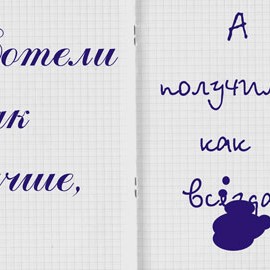 Хотели
ак
учше,
А
получил
как
всегда